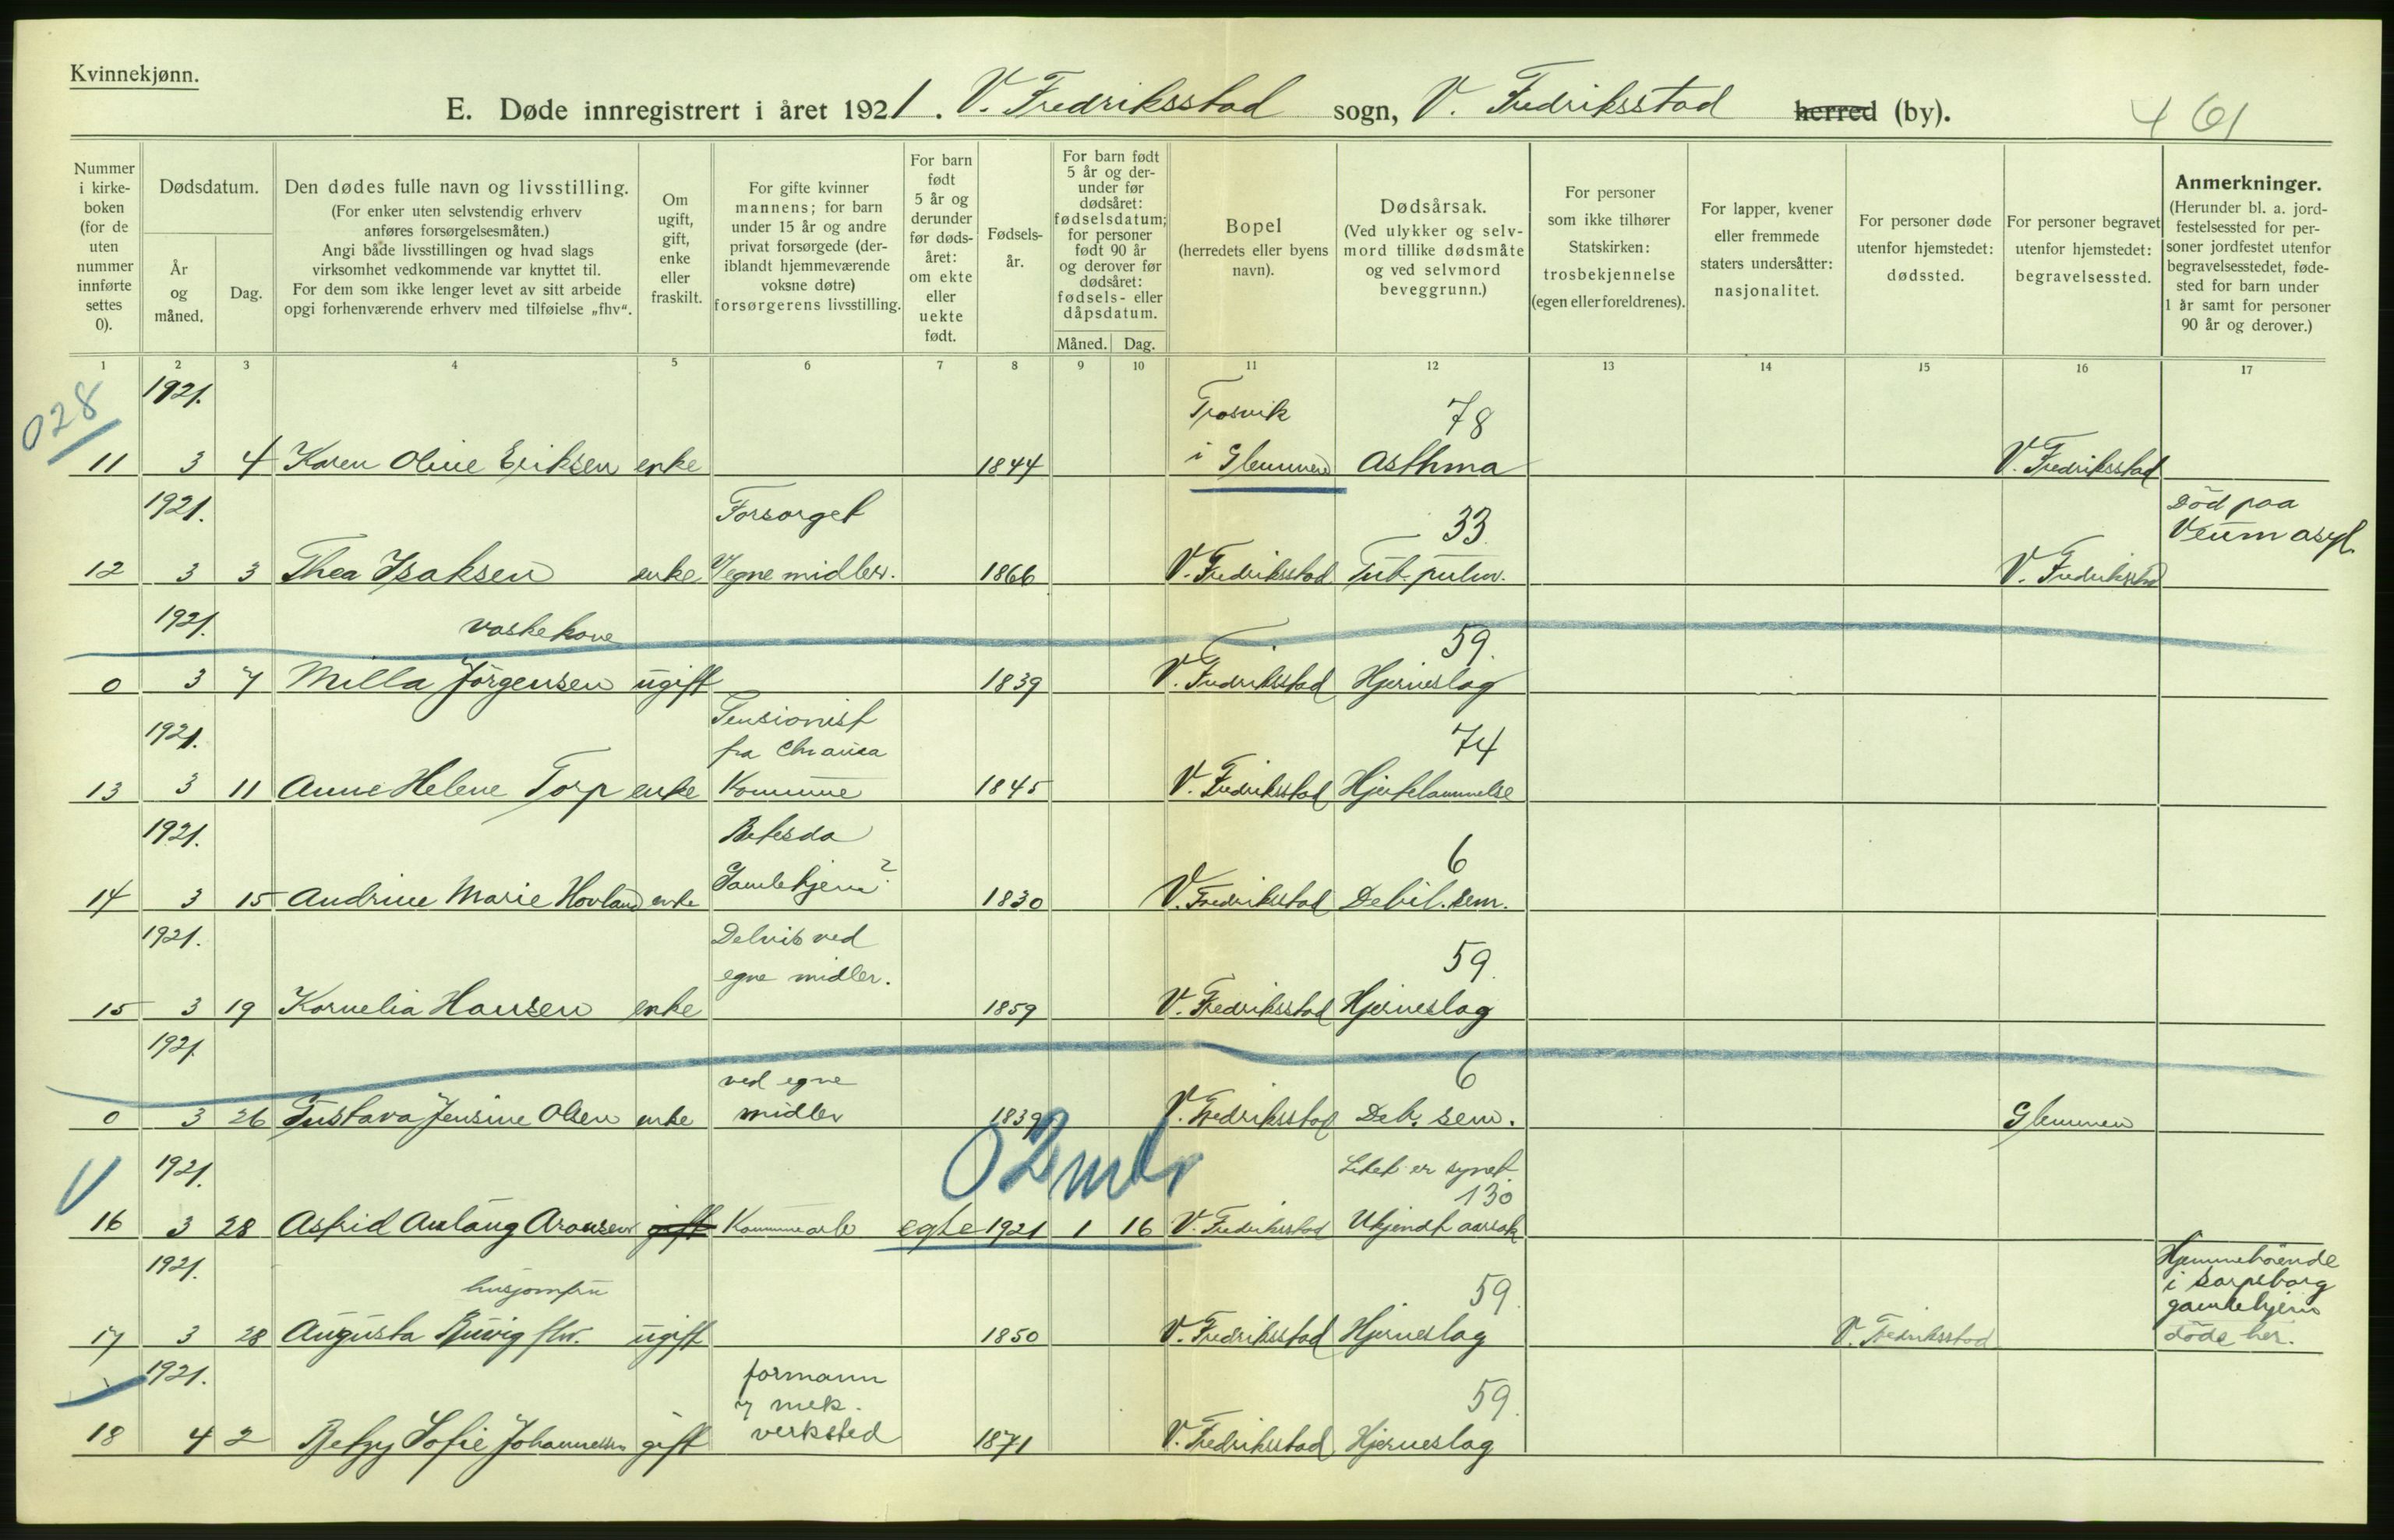 Kvinnekjønn.
E. Døde innregistrert i året 1921. V. Fredriksstad sogn, V. Fredriksstad herred (by).
461
Nummer i kirke-boken (for de uten nummer innførte settes 0).
Dødsdatum.
År og måned.
Dag.
Den dødes fulle navn og livsstilling.
(For enker uten selvstendig erhverv anføres forsørgelsesmåten.)
Angi både livsstillingen og hvad slags virksomhet vedkommende var knyttet til.
For dem som ikke lenger levet av sitt arbeide opgi forhenværende erhverv med tilføielse „fhv“.
Om ugift, gift, enke eller fraskilt.
For gifte kvinner mannens; for barn under 15 år og andre privat forsørgede (deriblandt hjemmeværende voksne døtre) forsørgerens livsstilling.
For barn født 5 år og derunder før dødsåret: om ekte eller uekte født.
Fødsels-år.
For barn født 5 år og derunder før dødsåret: fødselsdatum; for personer født 90 år og derover før dødsåret: fødsels- eller dåpsdatum.
Måned. Dag.
Bopel (herredets eller byens navn).
Dødsårsak.
(Ved ulykker og selvmord tillike dødsmåte og ved selvmord beveggrunn.)
For personer som ikke tilhører Statskirken: trosbekjennelse (egen eller foreldrenes).
For lapper, kvener eller fremmede staters undersåtter: nasjonalitet.
For personer døde utenfor hjemstedet: dødssted.
For personer begravet utenfor hjemstedet: begravelsessted.
Anmerkninger.
(Herunder bl. a. jordfestelsessted for personer jordfestet utenfor begravelsesstedet, fødested for barn under 1 år samt for personer 90 år og derover.)
1 2 3 4 5 6 7 8 9 10 11 12 13 14 15 16 17
028
1921. Trosvik 78
11 3 4 Karen Oline Eriksen enke 1844 i Glemmen Asthma V. Fredriksstad
1921. Forsørget 33. Død paa Veum asyl.
12 3 3 Thea Isaksen enke v/egne midler. 1866 V. Fredriksstad Tub. pulm. V. Fredriksstad
1921. vaskekone 59.
0 3 7 Milla Jörgensen ugift 1839 V. Fredriksstad Hjerneslag
1921. Pensionist fra Chrania 74
13 3 11 Anne Helene Torp enke Kommune 1845 V. Fredriksstad Hjertelammelse
1921. Betesda 6
14 3 15 Andrine Marie Hovland enke Gamlehjem? 1830 V. Fredriksstad Debil. sem.
1921. Delvis ved egne midler. 59.
15 3 19 Kornelia Hansen enke 1859 V. Fredriksstad Hjerneslag
1921. ved egne 6
0 3 26 Gustava Jensine Olsen enke midler 1839 V. Fredriksstad Deb. sem. Glemmen
02 mdr
V 1921. Liket er synet 130
16 3 28 Astrid Aulaug Aronsen gift Kommunearb egte 1921 1 16 V. Fredriksstad Ukjendt aarsak
1921. husjomfru 59. Hjemmehörende i Sarpsborg gamlehjem döde her.
17 3 28 Augusta fhv. ugift 1850 V. Fredriksstad Hjerneslag V. Fredriksstad
1921. formann mek. 59.
18 4 2 Betzy Sofie Johannessen gift verksted 1871 V. Fredriksstad Hjerneslag